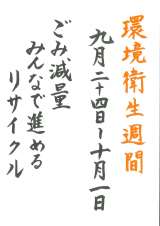 環境衛生週間
九月二十四日〜十月一日
ごみ減量
みんなで進める
リサイクル